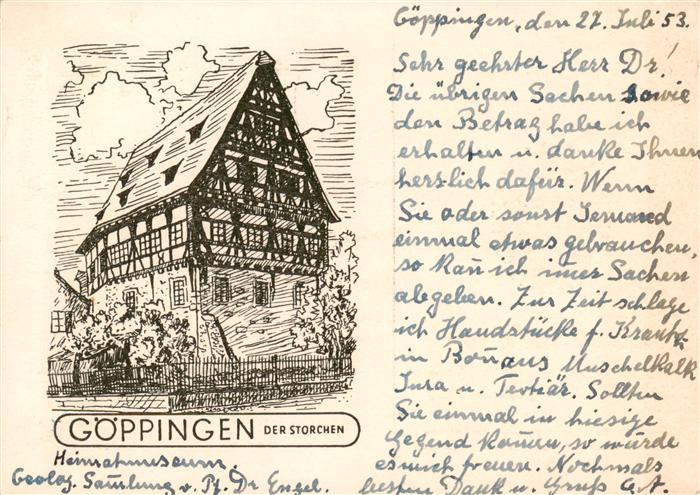 Göppingen, den 27. Juli 53.
Sehr geehrter Herr Dr!
Die übrigen Sachen sowie
den Betrag habe ich
erhalten u. danke Ihnen
herzlich dafür. Wenn
Sie oder sonst Jemand
einmal etwas gebrauchen,
so kan̄ ich im̄er Sachen
abgeben. Zur Zeit schlage
ich Handstücke f. Krantz
in Bon̄ aus Muschelkalk
Jura u. Tertiär. Sollten
Sie einmal in hiesige
Gegend kom̄en, so würde
es mich freuen. Nochmals
besten Dank u. Gruß
GÖPPINGEN DER STORCHEN
Heimatmuseum.
Geolog. Sam̄lung v. Pf. Dr. Engel.